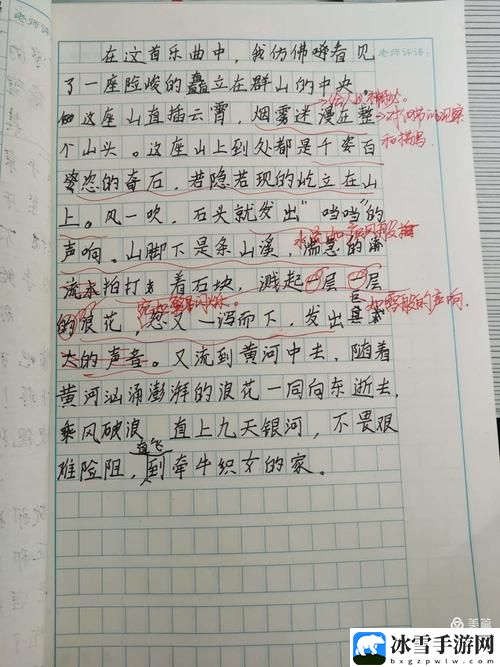 老师评语:
在这首乐曲中，我仿佛看见
了一座险峻的矗立在群山的中央
这座山直插云霄，烟雾迷漫在整
个山头。这座山上到处都是千姿百
姿态的奇石，若隐若现的屹立在山
上。风一吹，石头就发出“当当”的
声响。山脚下是条山溪，湍急的
流水拍打着石块，溅起一层一层
的浪花，忽又一泻而下，发出
大的声音。又流到黄河中去，随着
黄河汹涌澎湃的浪花一同向东逝去，
乘风破浪，直上九天银河，不畏艰
直飞
难险阻，到牵牛织女的家。
对细节的观察
和描写
的声响.
美篇
冰雪手游网
bxgzpwlw.com